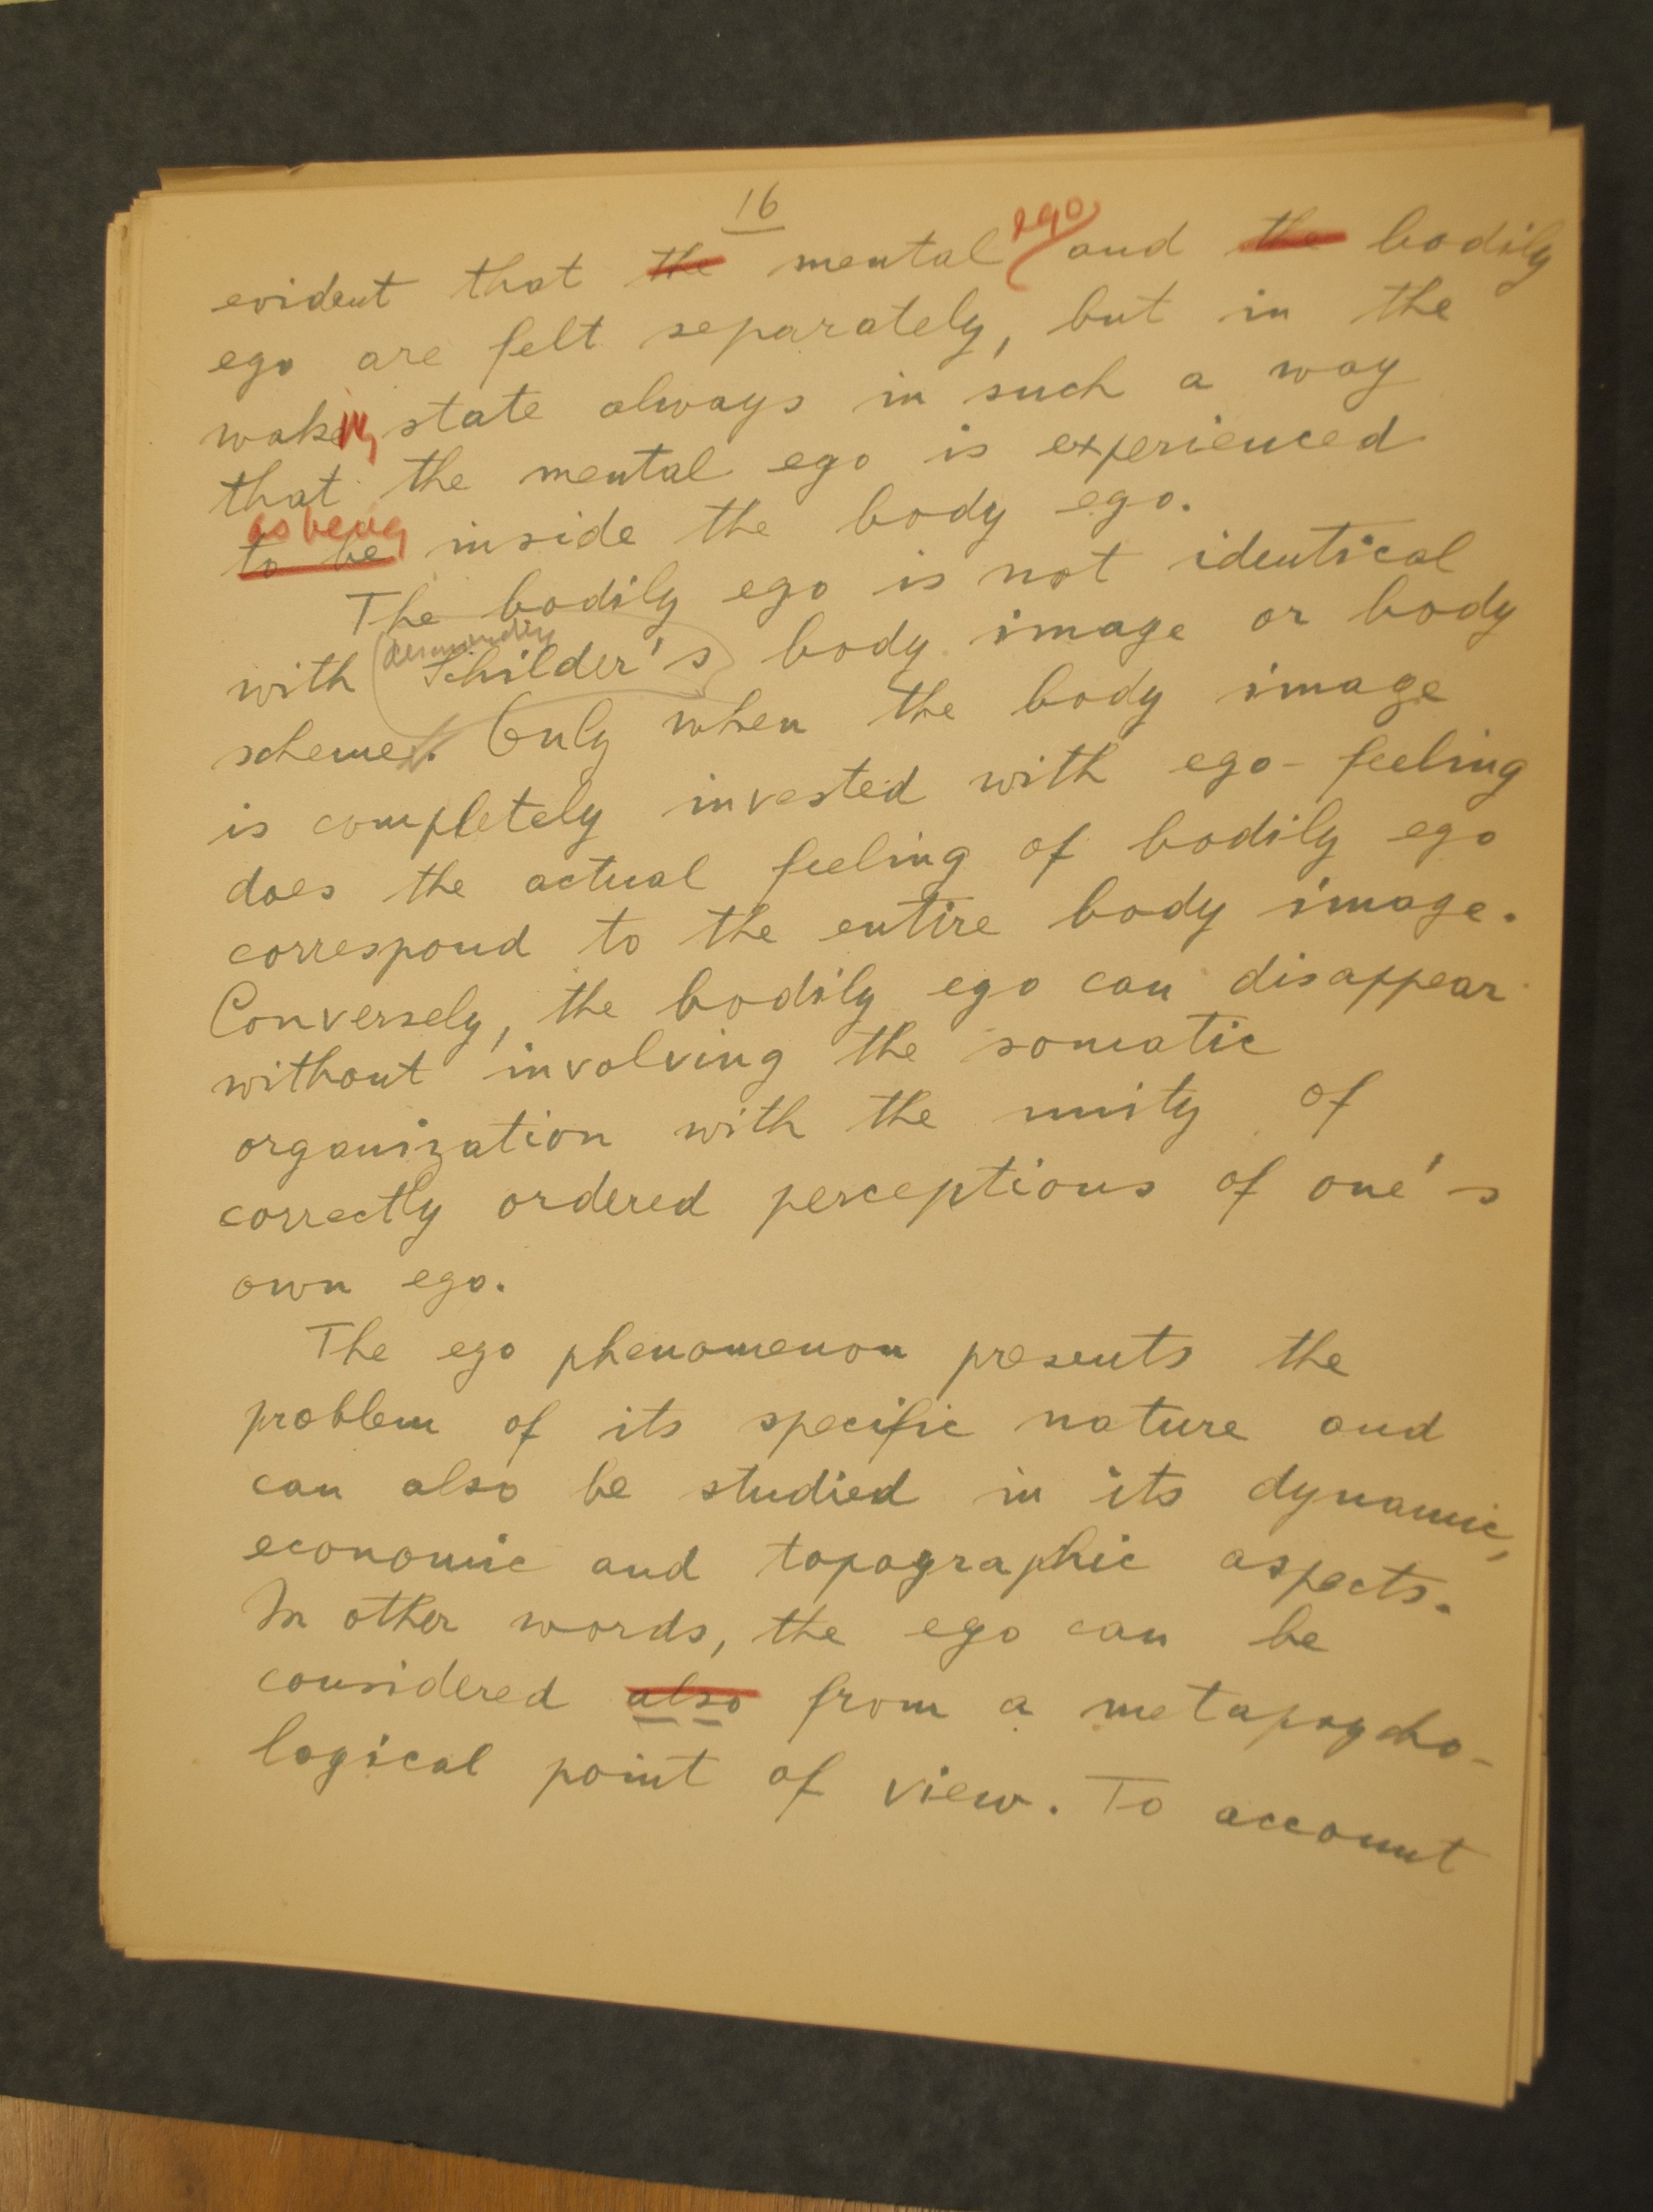 16
evident that the mental ego and the bodily
ego are felt separately, but in the
waking state always in such a way
that the mental ego is experienced
as being
to be inside the body ego.
The bodily ego is not identical
with Schilder's body image or body
scheme. Only when the body image
is completely invested with ego-feeling
does the actual feeling of bodily ego
correspond to the entire body image.
Conversely, the bodily ego can disappear
without involving the somatic
organization with the unity of
correctly ordered perceptions of one's
own ego.
The ego phenomenon presents the
problem of its specific nature and
can also be studied in its dynamic,
economic and topographic aspects.
In other words, the ego can be
considered also from a metapsycho-
logical point of view. To account